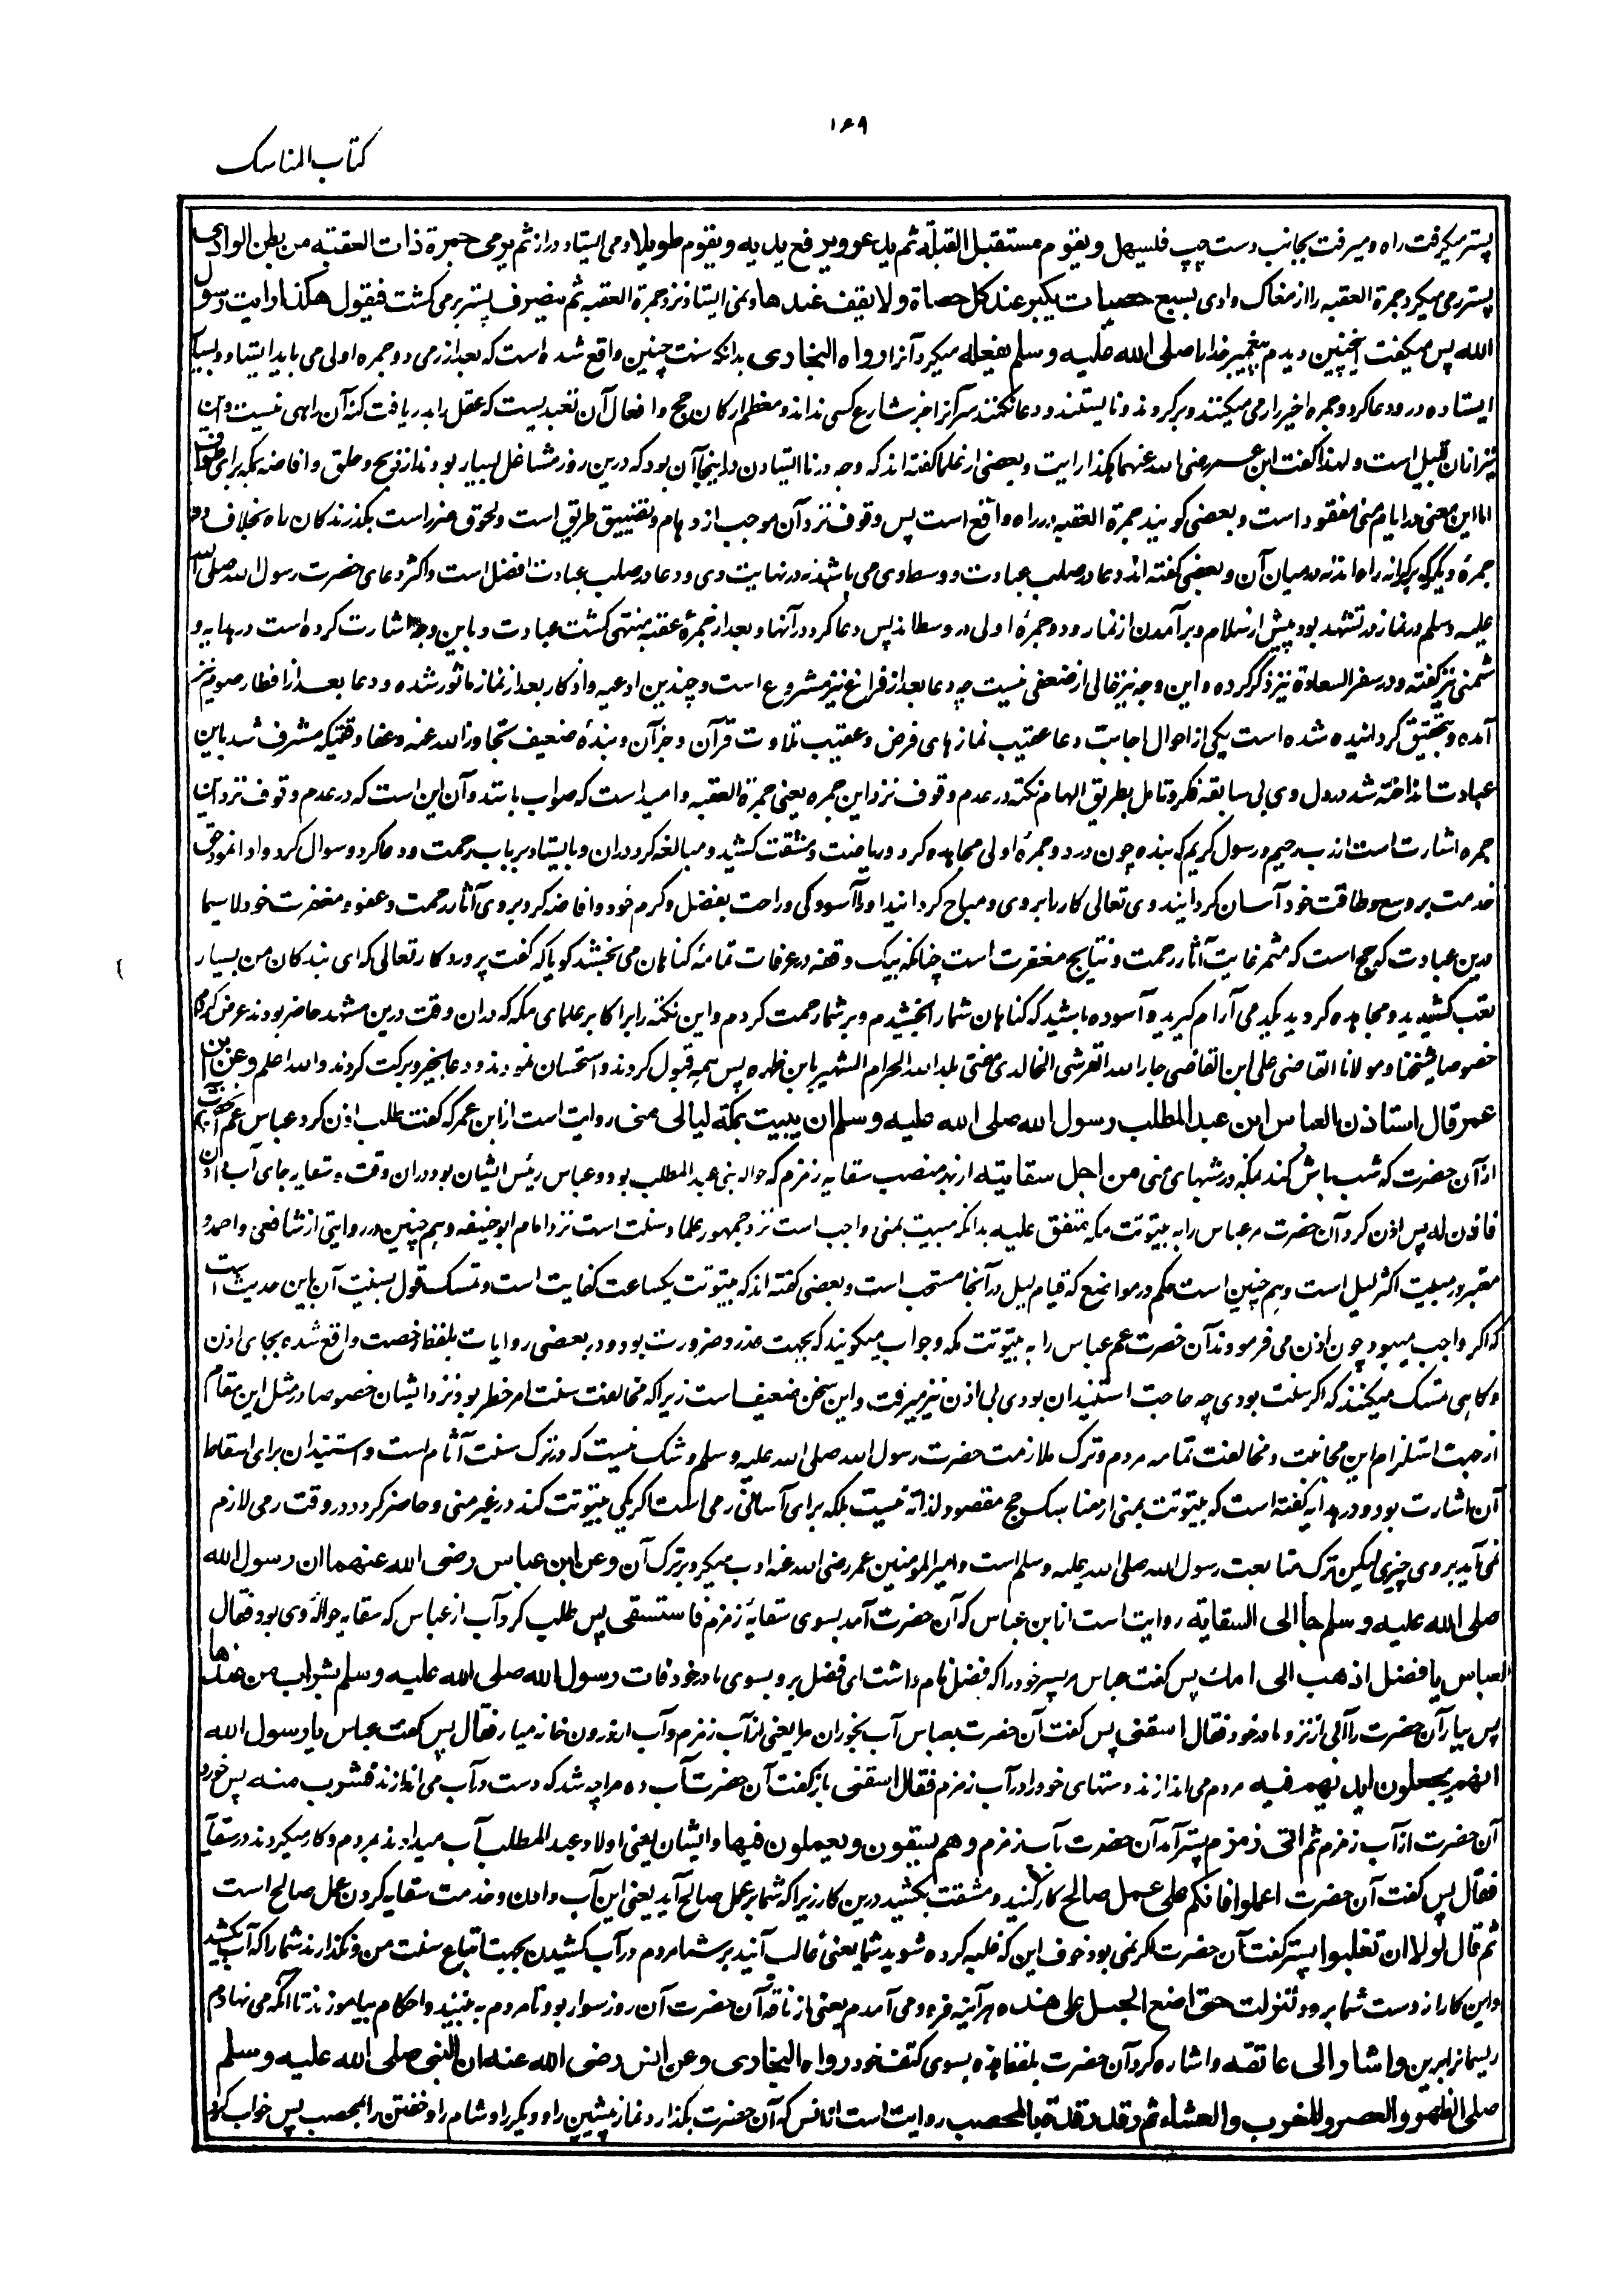 ۱۶۹
کتاب المناسک
پستر میگرفت راه و میرفت بجانب دست چپ فلیسهل و یقوم مستقبل القبلة ثم یدعو ویرفع یدیه ویقوم طویلا ومی ایستاد دراز ثم یرمی جمرة ذات العقبته من بطن الوادی
پستر رمی میکرد جمرة العقبه را از مغاک وادی بسبع حصیات یکبر عند کل حصاة ولا یقف عندها ونمی ایستاد نزد جمرة العقبه ثم ینصرف پستر برمی گشت فیقول هکذا رایت رسول
الله پس میگفت اینچنین دیدم پیغمبر خدا را صلی الله علیه وسلم یفعله میکرد آنرا رواه البخاری بدانکه سنت چنین واقع شده است که بعد از رمی دو جمره اولی می باید ایستاد و بسیار
ایستاده درو دعا کرد و جمره اخیر را رمی میکنند و برگردند و نایستند و دعا نکنند سر آنرا جز شارع کسی نداند و معظم ارکان حج و افعال آن تعبدیست که عقل را بدریافت کنه آن راهی نیست و این
نیز ازان قبیل است و لهذا گفت ابن عمر رضی الله عنهما هکذا رایت و بعضی از علما گفته اند که وجه در نا ایستادن در اینجا آن بود که درین روز مشاغل بسیار بودند از ذبح و حلق و افاضه بمکه برای طواف
اما این معنی در ایام منی مفقود است و بعضی گویند جمرة العقبه در راه واقع است پس وقوف نزد آن موجب ازدهام و تضییق طریق است و لحوق ضرر است بگذرندگان راه بخلاف دو
جمرهٔ دیگر که بر کرانه راه اند نه در میان آن و بعضی گفته اند دعا در صلب عبادت و وسط وی می باشد نه در نهایت وی و دعا در صلب عبادت افضل است و اکثر دعای حضرت رسول الله صلی الله
علیه وسلم در نماز در تشهد بود پیش از سلام و برآمدن از نماز و دو جمرهٔ اولی در وسط اند پس دعا کرد در آنها و بعد از جمرهٔ عقبه منتهی گشت عبادت و باین وجه اشارت کرده است در هدایه و
شمنی نیز گفته و در سفر السعادة نیز ذکر کرده و این وجه نیز خالی از ضعفی نیست چه دعا بعد از فراغ نیز مشروع است و چندین ادعیه و اذکار بعد از نماز ماثور شده و دعا بعد از افطار صوم نیز
آمده و بتحقیق گردانیده شده است یکی از احوال اجابت دعا عقیب نماز های فرض و عقیب تلاوت قرآن و جز آن و بندهٔ ضعیف تجاوز الله عنه و عفا وقتیکه مشرف شد باین
عبادت انداخته شد در دل وی بی سابقه فکر و تامل بطریق الهام نکته در عدم وقوف نزد این جمره یعنی جمرة العقبه و امید است که صواب باشد و آن این است که در عدم وقوف نزد این
جمره اشارت است از رب رحیم و رسول کریم که بنده چون در دو جمرهٔ اولی مجاهده کرد و ریاضت و مشقت کشید و مبالغه کرد دران و بایستاد بر باب رحمت و دعا کرد و سوال کرد و ادا نمود حق
خدمت بر وسع و طاقت خود آسان گردانیند وی تعالی کار را بر وی و مباح گردانید او را آسودگی و راحت بفضل و کرم خود و افاضه کرد بر وی آثار رحمت و عفو و مغفرت خود لا سیما
درین عبادت که حج است که مثمر غایت آثار رحمت و نتایج مغفرت است چنانکه بیک وقفه در عرفات تمامه گناهان می بخشند گویا که گفت پروردگار تعالی که ای بندگان من بسیار
تعب کشیدید و مجاهده کردید یکدمی آرام گیرید و آسوده باشید که گناهان شما را بخشیدم و بر شما رحمت کردم و این نکته را بر اکابر علمای مکه که دران وقت درین مشهد حاضر بودند عرض کردم
خصوصا شیخنا و مولانا القاضی علی ابن القاضی جار الله القرشی الخالدی مفتی بلد الله الحرام الشهیر بابن ظهره پس همه قبول کردند و استحسان نمودند و دعا بخیر و برکت کردند والله اعلم وعن ابن
عمر قال استاذن العباس ابن عبد المطلب رسول الله صلی الله علیه وسلم ان یبیت بمکة لیالی منی روایت است از ابن عمر که گفت طلب اذن کرد عباس عم آنحضرت
از آن حضرت که شب باش کند بمکه در شبهای منی من اجل سقایته از بهر منصب سقایه زمزم که حواله بنی عبد المطلب بود و عباس رئیس ایشان بود دران وقت و سقایه جای آب دادن
فاذن له پس اذن کرد آن حضرت مر عباس را به بیتوتت مکه متفق علیه بدانکه مبیت بمنی واجب است نزد جمهور علما و سنت است نزد امام ابو حنیفه و هم چنین در روایتی از شافعی و احمد و
معتبر در مبیت اکثر لیل است و هم چنین است حکم در مواضع که قیام لیل در آنجا مستحب است و بعضی گفته اند که بیتوتت یکساعت کفایت است و تمسک قول بسنیت آن باین حدیث است
که اگر واجب میبود چون اذن می فرمودند آن حضرت عم عباس را به بیتوتت مکه و جواب میگویند که بجهت عذر و ضرورت بود و در بعضی روایات بلفظ رخصت واقع شده بجای اذن
و گاهی تمسک میکنند که اگر سنت بودی چه حاجت استیذان بودی بی اذن نیز میرفت و این سخن ضعیف است زیرا که مخالفت سنت امر خطر بود نزد ایشان خصوصا در مثل این مقام
از جهت استلزام این مجانبت و مخالفت تمامه مردم و ترک ملازمت حضرت رسول الله صلی الله علیه وسلم و شک نیست که در ترک سنت آثام است و استیذان برای اسقاط
آن اشارت بود و در هدایه گفته است که بیتوتت بمنی از مناسک حج مقصود لذاته نیست بلکه برای آسانی رمی است اگر یکی بیتوتت کند در غیر منی و حاضر گردد در وقت رمی لازم
نمی آید بر وی چیزی لیکن ترک متابعت رسول الله صلی الله علیه وسلم است و امیر المومنین عمر رضی الله عنه ادب میکرد بر ترک آن وعن ابن عباس رضی الله عنهما ان رسول الله
صلی الله علیه وسلم جا الی السقایة روایت است از ابن عباس که آن حضرت آمد بسوی سقایهٔ زمزم فاستسقی پس طلب کرد آب از عباس که سقایه حوالهٔ وی بود فقال
العباس یا فضل اذهب الی امك پس گفت عباس مر پسر خود را که فضل نام داشت ای فضل برو بسوی مادر خود فات رسول الله صلی الله علیه وسلم بشراب من عندها
پس بیار آن حضرت را آبی از نزد مادر خود فقال اسقنی پس گفت آن حضرت بعباس آب بخوران مرا یعنی از آب زمزم و آب از درون خانه میار فقال پس گفت عباس یا رسول الله
انهم یجعلون ایدیهم فیه مردم می اندازند دستهای خود را در آب زمزم فقال اسقنی باز گفت آن حضرت آب ده مرا چه شد که دست در آب می اندازند فشرب منه پس خورد
آن حضرت از آب زمزم ثم اتی زمزم پستر آمد آن حضرت بآب زمزم وهم یسقون ویعملون فیها و ایشان یعنی اولاد عبد المطلب آب میدادند بمردم و کار میکردند در سقایة
فقال پس گفت آن حضرت اعملوا فانکم علی عمل صالح کار کنید و مشقت بکشید درین کار زیرا که شما بر عمل صالح آید یعنی این آب دادن و خدمت سقایه کردن عمل صالح است
ثم قال لولا ان تغلبوا پستر گفت آن حضرت اگر نمی بود خوف این که غلبه کرده شوید شما یعنی غالب آیند بر شما مردم در آب کشیدن بجهت اتباع سنت من و نگذارند شما را که آب بکشید
و این کار از دست شما برود لنزلت حتی اضع الحبل علی هذه هر آینه فرود می آمدم یعنی از ناقه آن حضرت آن روز سوار بود تا مردم به بینند و احکام بیاموزند تا آنکه می نهادم
ریسمان را برین واشار الی عاتقه و اشاره کرد آن حضرت بلفظ هذه بسوی کتف خود رواه البخاری وعن انس رضی الله عنه ان النبی صلی الله علیه وسلم
صلی الظهر والعصر والمغرب والعشاء ثم رقد رقدة بالمحصب روایت است از انس که آن حضرت بگذارد نماز پیشین را و دیگر را و شام را و خفتن را بمحصب پس خواب کرد